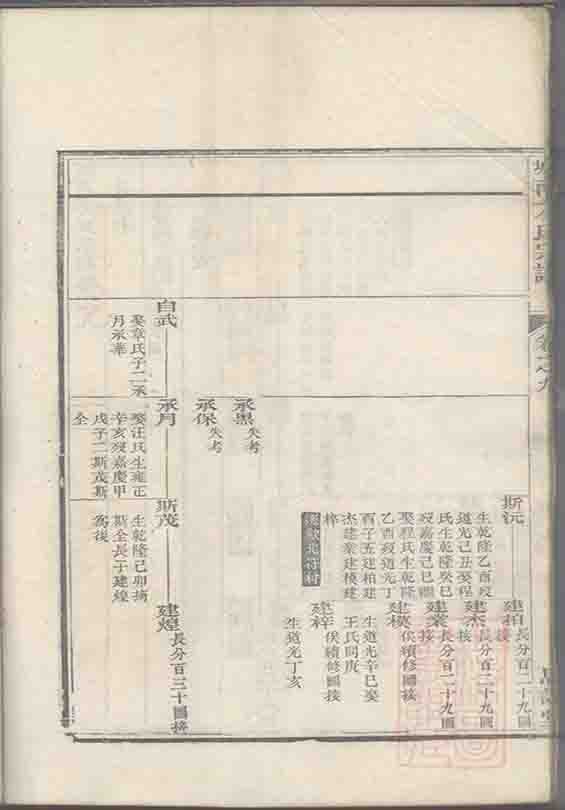 氏宗譜
卷之九
斯沅
生乾隆乙酉歿
道光己丑娶程
氏生乾隆癸巳
歿嘉慶己巳繼
娶程氏生乾隆
乙酉歿道光丁
酉子五建柏建
杰建業建模建
梓
建柏
長分百二十九圖
接
建杰
長分百二十九圖
接
建業
長分百二十九圖
接
建模
俟續修圖接
生道光辛巳娶
王氏同庚
建梓
俟續修圖接
生道光丁亥
承黑
失考
承保
失考
自武
娶章氏子二承
月承華
承月
娶汪氏生雍正
辛亥歿嘉慶甲
戌子二斯茂斯
全
斯茂
生乾隆己卯摘
斯全長子建煌
為後
建煌
長分百三十圖接